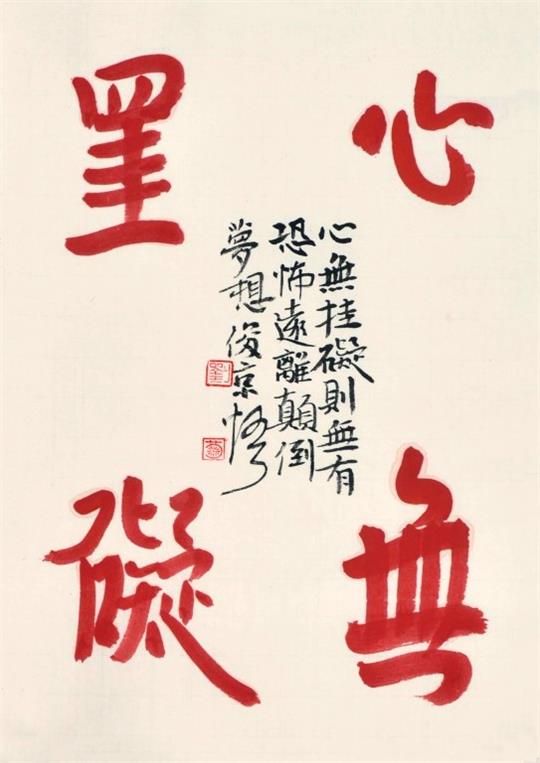 心無
罣礙
心無挂礙則無有
恐怖遠離顛倒
夢想俊京
劉